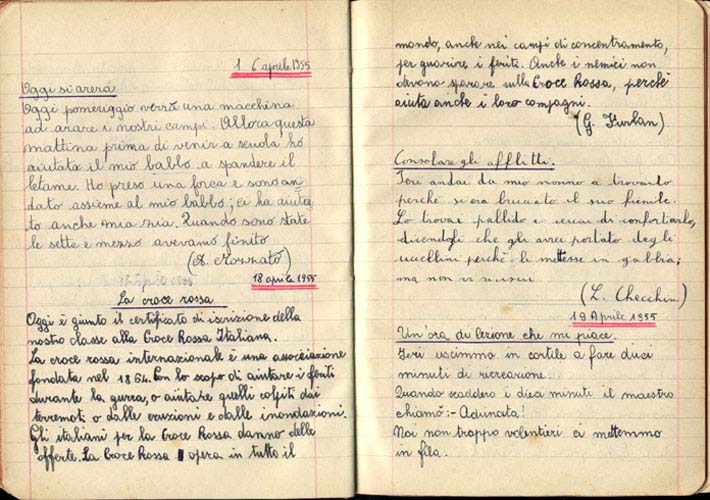 16 aprile 1955
Oggi si arerà
Oggi pomeriggio verrà una macchina
ad arare i nostri campi. Allora questa
mattina prima di venir a scuola ho
aiutato il mio babbo a spandere il
letame. Ho preso una forca e sono an
dato assieme al mio babbo; ci ha aiuta
to anche mia zia. Quando sono state
le sette e mezzo avevamo finito
(A. Mozzato)
18 aprile 1955
La croce rossa
Oggi è giunto il certificato di iscrizione della
nostra classe alla Croce Rossa Italiana.
La croce rossa internazionale è una associazione
fondata nel 1864. Con lo scopo di aiutare i feriti
durante la guerra, o aiutare quelli colpiti dai
terremoti o dalle eruzioni e dalle inondazioni.
Gli italiani per la Croce Rossa danno delle
offerte. La Croce Rossa opera in tutto il
mondo, anche nei campi di concentramento,
per guarire i feriti. Anche i nemici non
devono sparare sulla Croce Rossa, perchè
aiuta anche i loro compagni.
(G. Furlan)
Consolare gli afflitti.
Ieri andai da mio nonno a trovarlo
perchè si era bruciato il suo fienile.
Lo trovai pallido e cercai di confortarlo,
dicendogli che gli avrei portato degli
uccellini perchè li mettesse in gabbia;
ma non vi riuscii
(L. Checchin)
19 Aprile 1955
Un'ora di lezione che mi piace.
Ieri uscimmo in cortile a fare dieci
minuti di ricreazione
Quando scaddero i dieci minuti il maestro
chiamò: - Adunata!
Noi non troppo volentieri ci mettemmo
in fila.